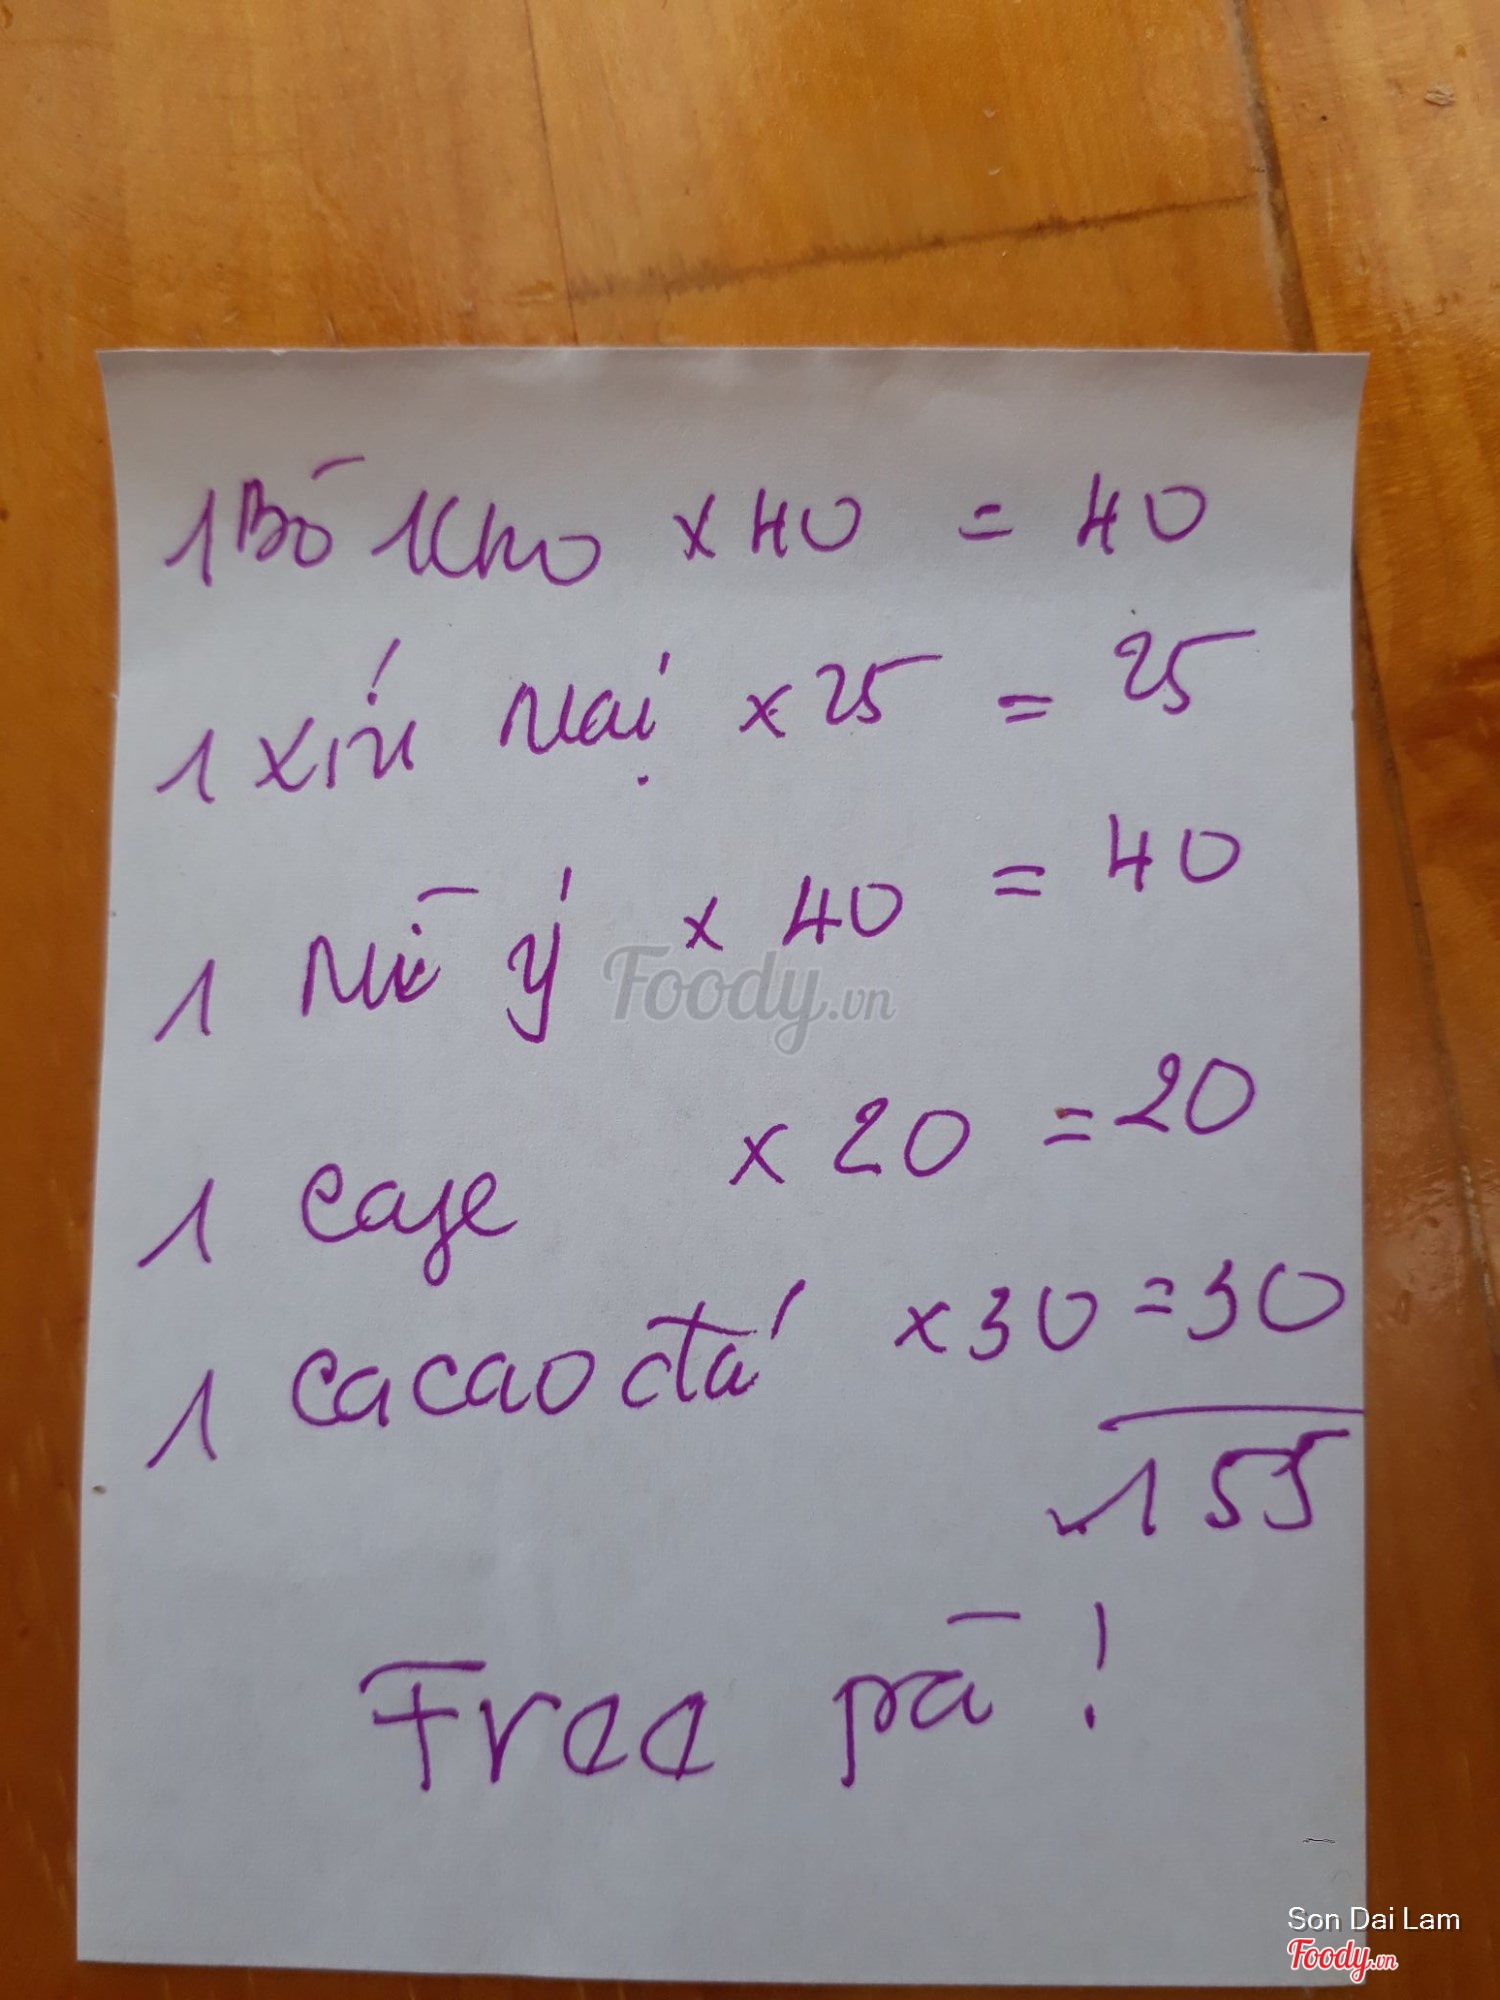 1 Bò Kho x 40 = 40
1 xíu Mại x 25 = 25
1 Mì ý x 40 = 40
Foody.vn
1 cafe x 20 = 20
1 cacao đá x 30 = 30
155
Free pà!
Son Dai Lam
Foody.vn